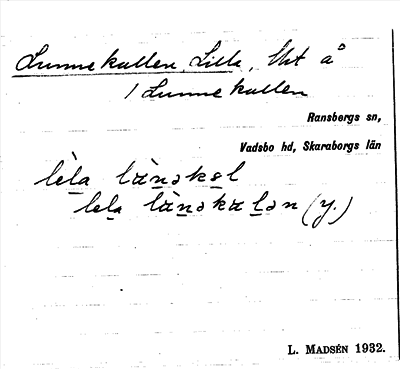 Lunnekullen, Lilla, Hmt å
/ Lunnekullen
Ransbergs sn,
Vadsbo hd, Skaraborgs län
lèla là̱nəkəl
lela là̱nəkalən (y.)
L. MADSÉN 1932.